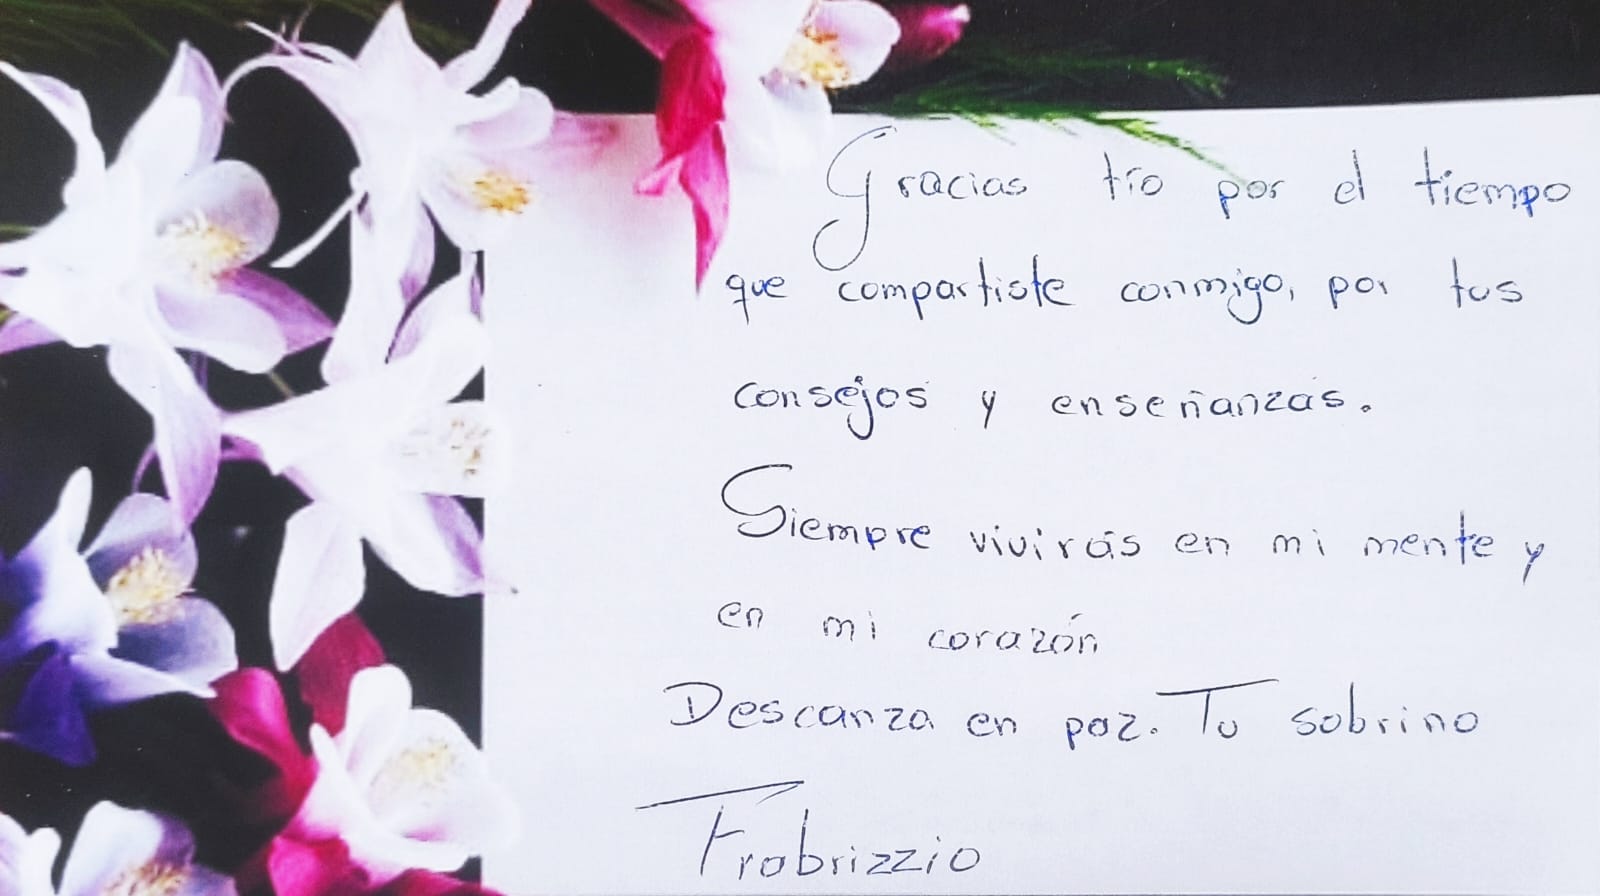 Gracias tío por el tiempo
que compartiste conmigo, por tus
consejos y enseñanzas.
Siempre vivirás en mi mente y
en mi corazón
Descanza en paz. Tu sobrino
Frabrizzio